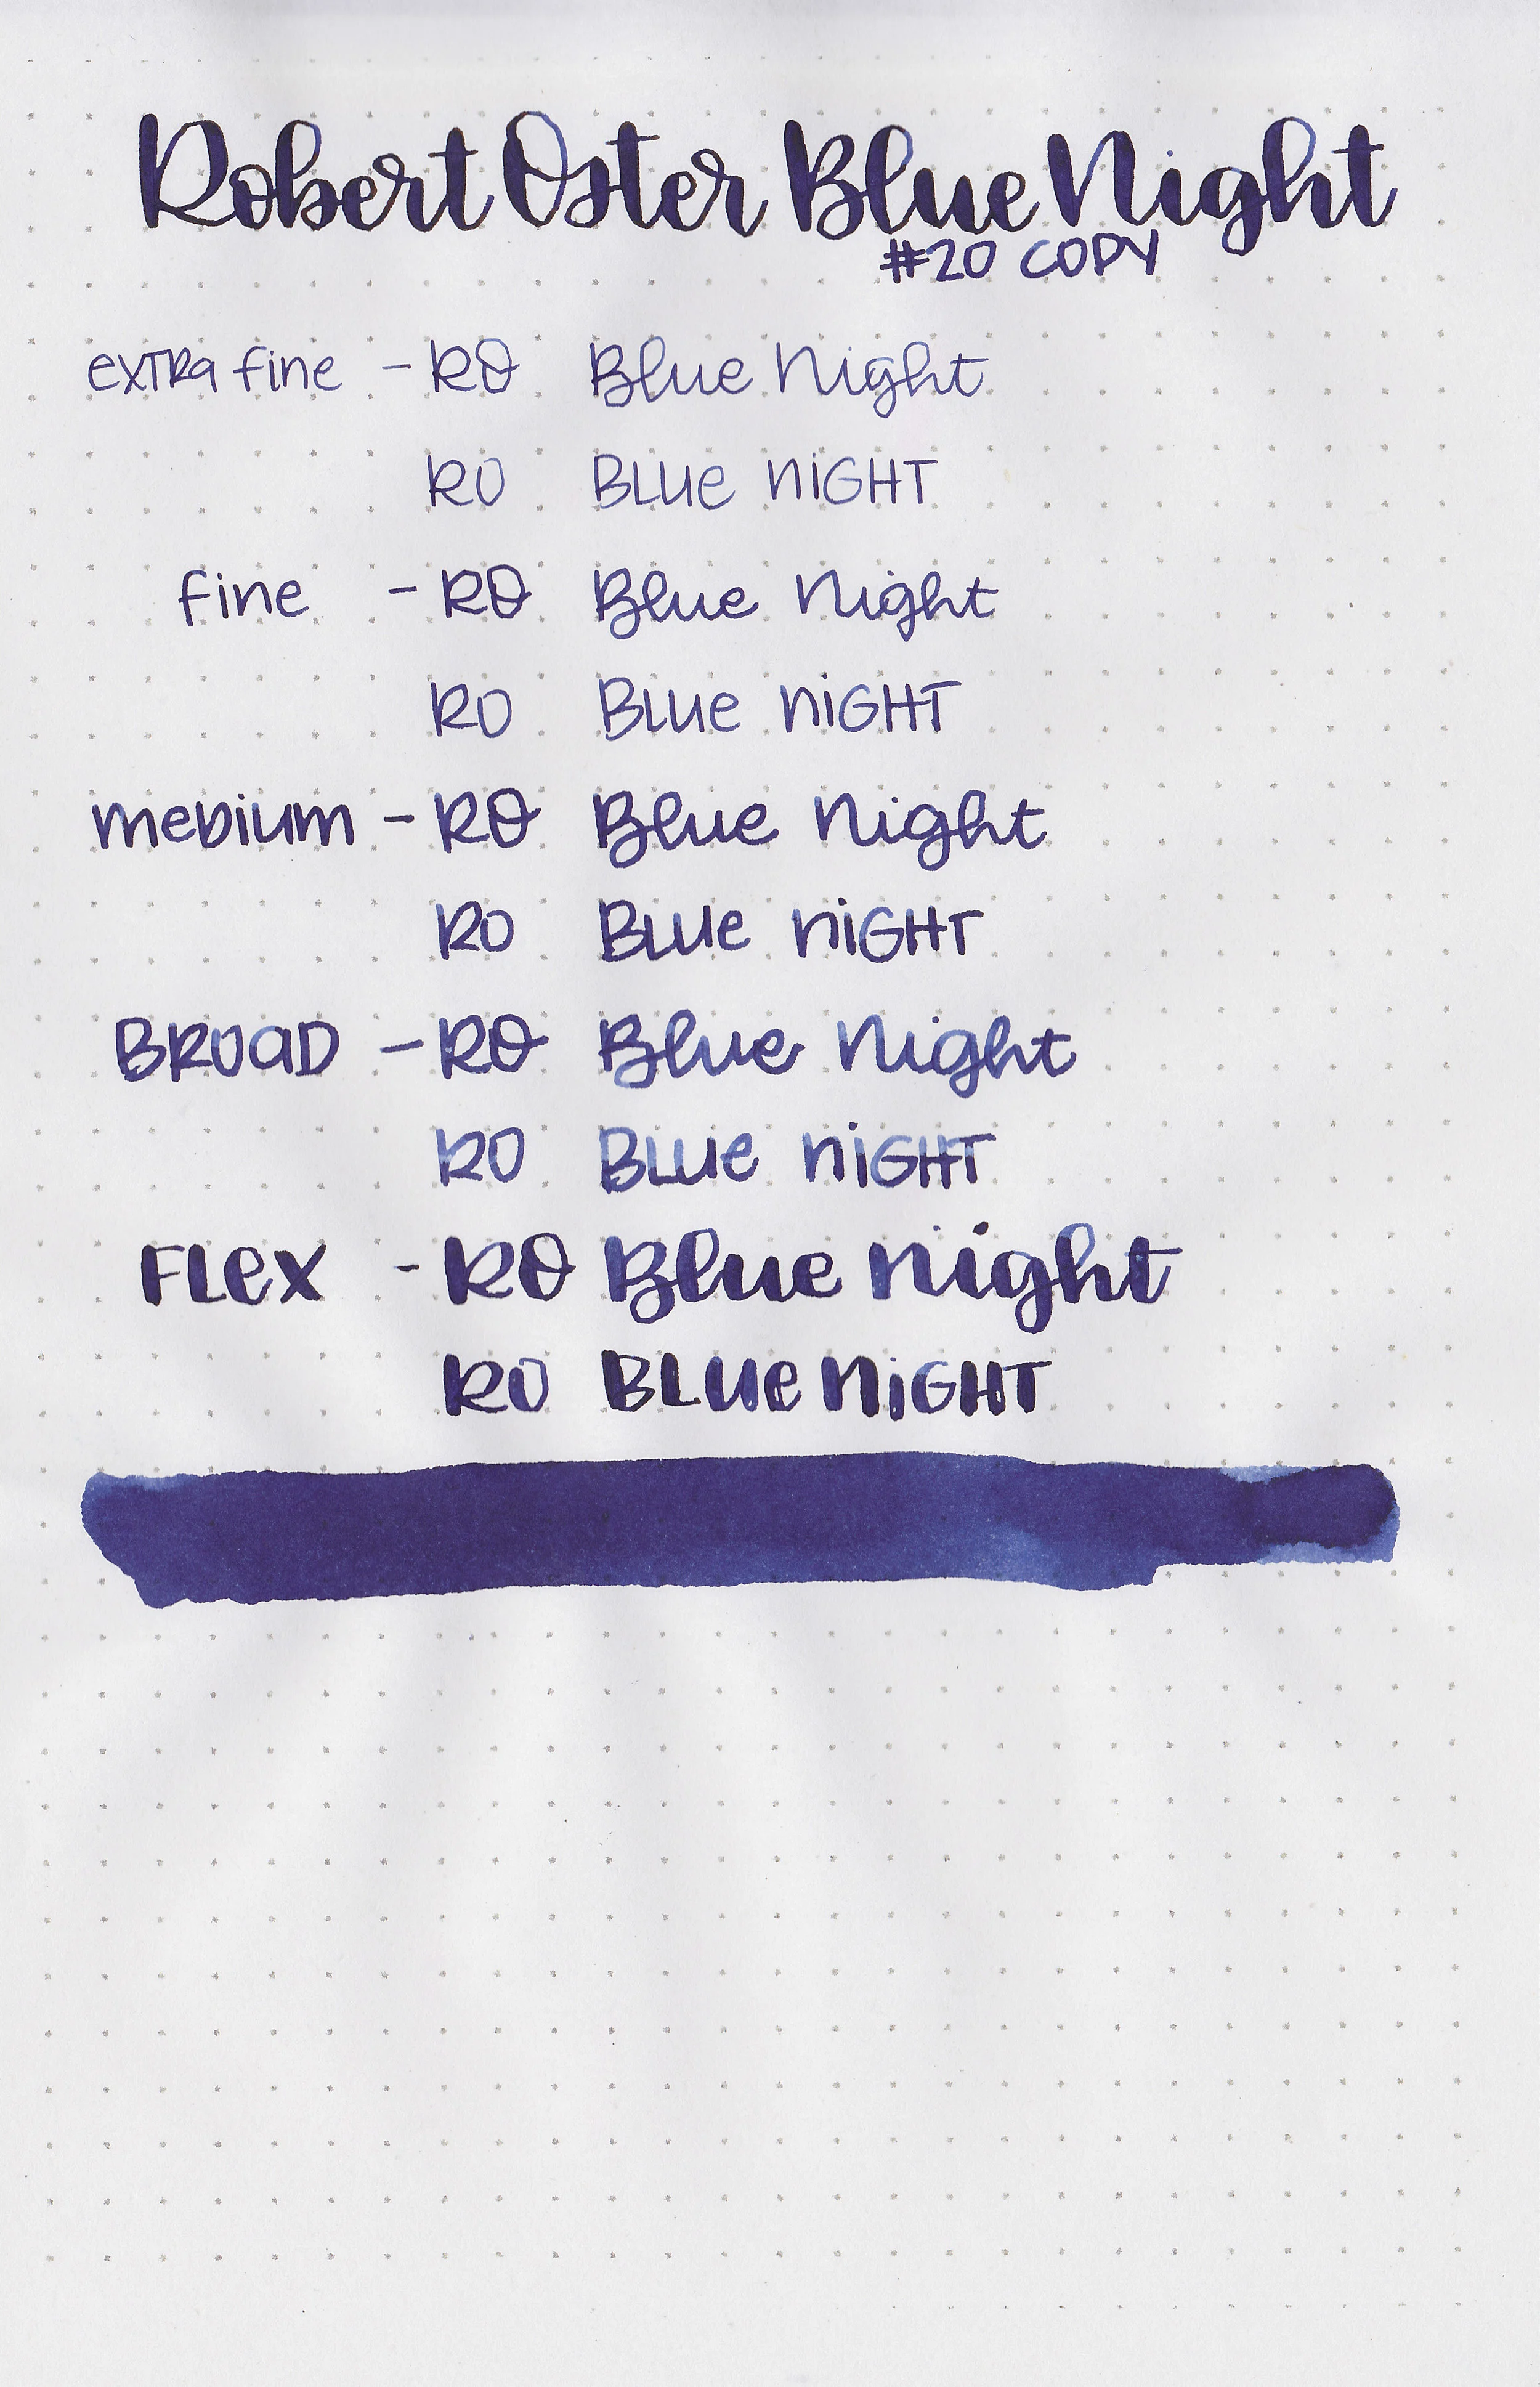 Robert Oster Blue Night
#20 COPY
exTRa fine - RO Blue Night
RO BLUe NiGHT
fine - RO Blue Night
RO BLUe NiGHT
meDium - RO Blue Night
RO BLUe NiGHT
BROaD - RO Blue Night
RO BLUe NiGHT
FLex - RO Blue Night
RO BLUe NiGHT